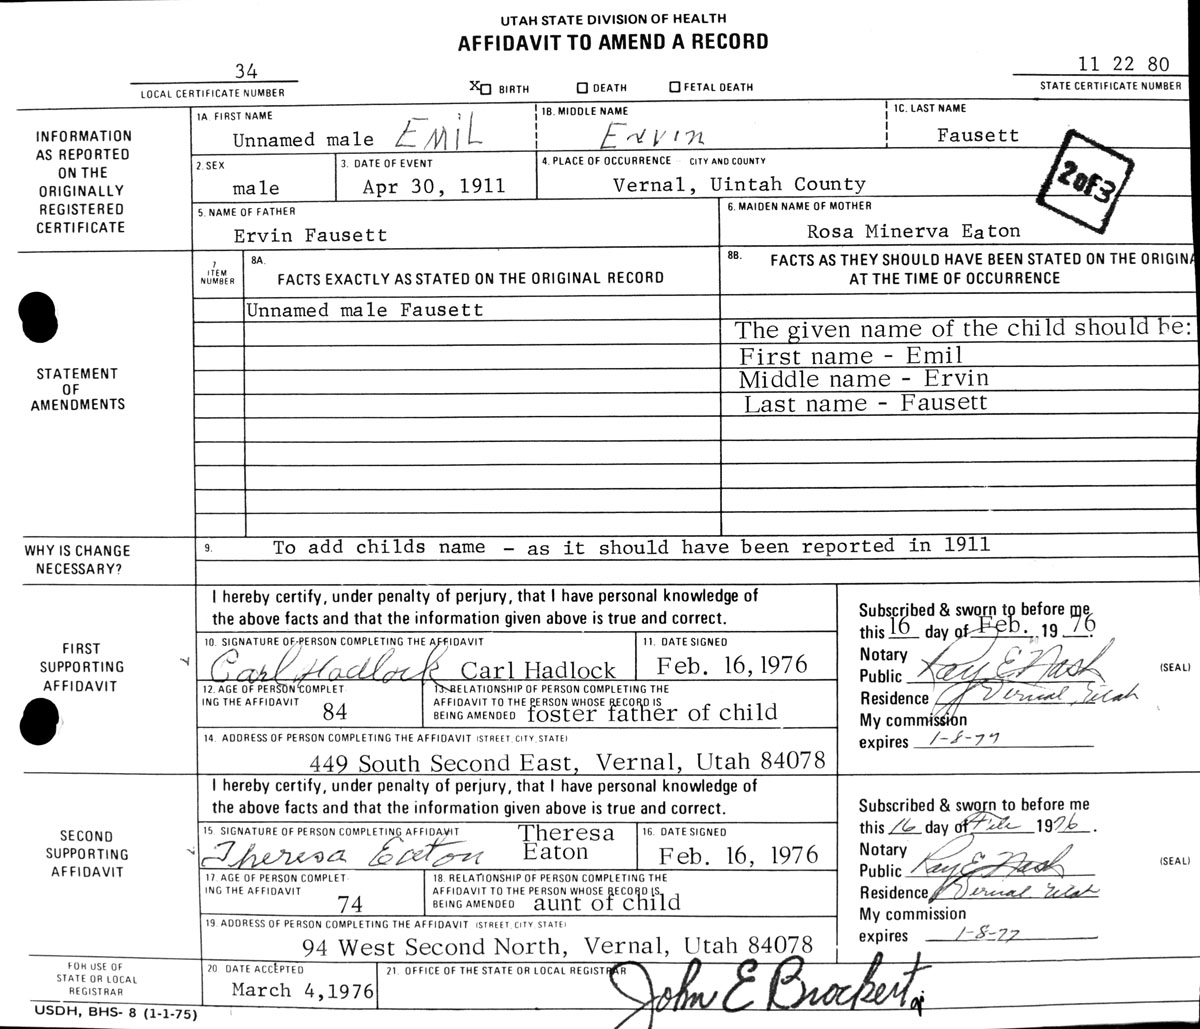 UTAH STATE DIVISION OF HEALTH
AFFIDAVIT TO AMEND A RECORD
34
LOCAL CERTIFICATE NUMBER
X BIRTH DEATH FETAL DEATH
11 22 80
STATE CERTIFICATE NUMBER
INFORMATION
AS REPORTED
ON THE
ORIGINALLY
REGISTERED
CERTIFICATE
1A. FIRST NAME
Unnamed male EMIL
1B. MIDDLE NAME
Ervin
1C. LAST NAME
Fausett
2. SEX
male
3. DATE OF EVENT
Apr 30, 1911
4. PLACE OF OCCURRENCE - CITY AND COUNTY
Vernal, Uintah County
2 of 3
5. NAME OF FATHER
Ervin Fausett
6. MAIDEN NAME OF MOTHER
Rosa Minerva Eaton
STATEMENT
OF
AMENDMENTS
7
ITEM
NUMBER
8A.
FACTS EXACTLY AS STATED ON THE ORIGINAL RECORD
8B. FACTS AS THEY SHOULD HAVE BEEN STATED ON THE ORIGINA
AT THE TIME OF OCCURRENCE
Unnamed male Fausett
The given name of the child should be:
First name - Emil
Middle name - Ervin
Last name - Fausett
WHY IS CHANGE
NECESSARY?
9. To add childs name - as it should have been reported in 1911
FIRST
SUPPORTING
AFFIDAVIT
I hereby certify, under penalty of perjury, that I have personal knowledge of
the above facts and that the information given above is true and correct.
10. SIGNATURE OF PERSON COMPLETING THE AFFIDAVIT
Carl Hadlock Carl Hadlock
11. DATE SIGNED
Feb. 16, 1976
12. AGE OF PERSON COMPLET-
ING THE AFFIDAVIT
84
13. RELATIONSHIP OF PERSON COMPLETING THE
AFFIDAVIT TO THE PERSON WHOSE RECORD IS
BEING AMENDED foster father of child
14. ADDRESS OF PERSON COMPLETING THE AFFIDAVIT (STREET, CITY, STATE)
449 South Second East, Vernal, Utah 84078
Subscribed & sworn to before me
this 16 day of Feb. 19 76.
Notary
Public Ray E Nash (SEAL)
Residence Vernal, Utah
My commission
expires 1-8-77
SECOND
SUPPORTING
AFFIDAVIT
I hereby certify, under penalty of perjury, that I have personal knowledge of
the above facts and that the information given above is true and correct.
15. SIGNATURE OF PERSON COMPLETING AFFIDAVIT
Theresa Eaton Theresa
Eaton
16. DATE SIGNED
Feb. 16, 1976
17. AGE OF PERSON COMPLET-
ING THE AFFIDAVIT
74
18. RELATIONSHIP OF PERSON COMPLETING THE
AFFIDAVIT TO THE PERSON WHOSE RECORD IS
BEING AMENDED aunt of child
19. ADDRESS OF PERSON COMPLETING THE AFFIDAVIT (STREET, CITY, STATE)
94 West Second North, Vernal, Utah 84078
Subscribed & sworn to before me
this 16 day of Feb 1976.
Notary
Public Ray E Nash (SEAL)
Residence Vernal Utah
My commission
expires 1-8-77
FOR USE OF
STATE OR LOCAL
REGISTRAR
20. DATE ACCEPTED
March 4, 1976
21. OFFICE OF THE STATE OR LOCAL REGISTRAR
John E Brockert
USDH, BHS- 8 (1-1-75)